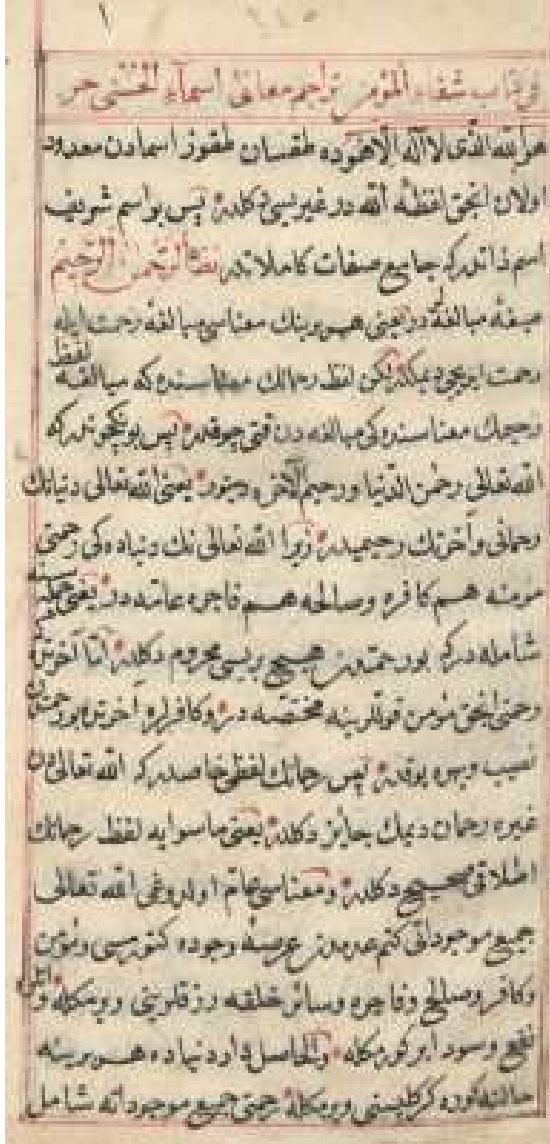 ١
١١٥
كتاب شفاء المؤمن تراجم معانى اسماء الحسنى
هو الله الذى لا اله الا هو ده طقسان طقوز اسمادن معدود
اولان انجق لفظة الله در غيريسى دكلدر پس بو اسم شريف
اسم ذاتدر كه جامع صفات كاملاتدر لفظ الرحمن الرحيم
صيغة مبالغة در يعنى هر برينك معناسى مبالغه رحمت ايله
رحمت ايديجى ديمكدر لكن لفظ رحمانك معناسنده كه مبالغه لفظ
رحيمك معناسنده كى مبالغه دن قتى چوقدر پس بونيچوندر كه
الله تعالى رحمن الدنيا ورحيم الآخره دينور يعنى الله تعالى دنيانك
رحمانى وآخرتك رحيميدر زيرا الله تعالى نك دنياده كى رحمتى
مؤمنه هم كافره وصالحه هم فاجره عامه در يعنى جمله سنه
شامله در كه بو رحمتدن هيچ بريسى محروم دكلدر اما آخرتده
رحمتى انجق مؤمن قوللرينه مختصه در وكافرلره آخرتده بو رحمتدن
نصيب وبهره يوقدر پس رحمانك لفظى خاصدر كه الله تعالى دن
غيره رحمان ديمك جايز دكلدر يعنى ماسوايه لفظ رحمانك
اطلاقى صحيح دكلدر ومعناسى عام اولدوغى الله تعالى
جميع موجوداتى كتم عدمدن عرصة وجوده كتورمسى ومؤمن
وكافر وصالح وفاجره وسائر خلقه رزقلرينى ويرمكله و
نفع وسود ايركورمكله والحاصل دار دنياده هر برينه
حالنه كوره كركليسنى ويرمكله رحمتى جميع موجوداته شامل